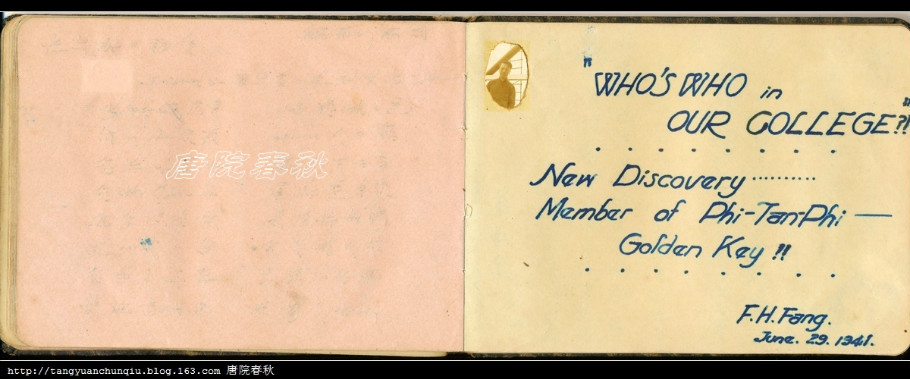 唐院春秋
"WHO'S WHO in
OUR COLLEGE"!!
New Discovery ..........
Member of Phi-TanPhi —
Golden Key !!
F.H. Fang.
June. 29. 1941.
http://tangyuanchunqiu.blog.163.com 唐院春秋